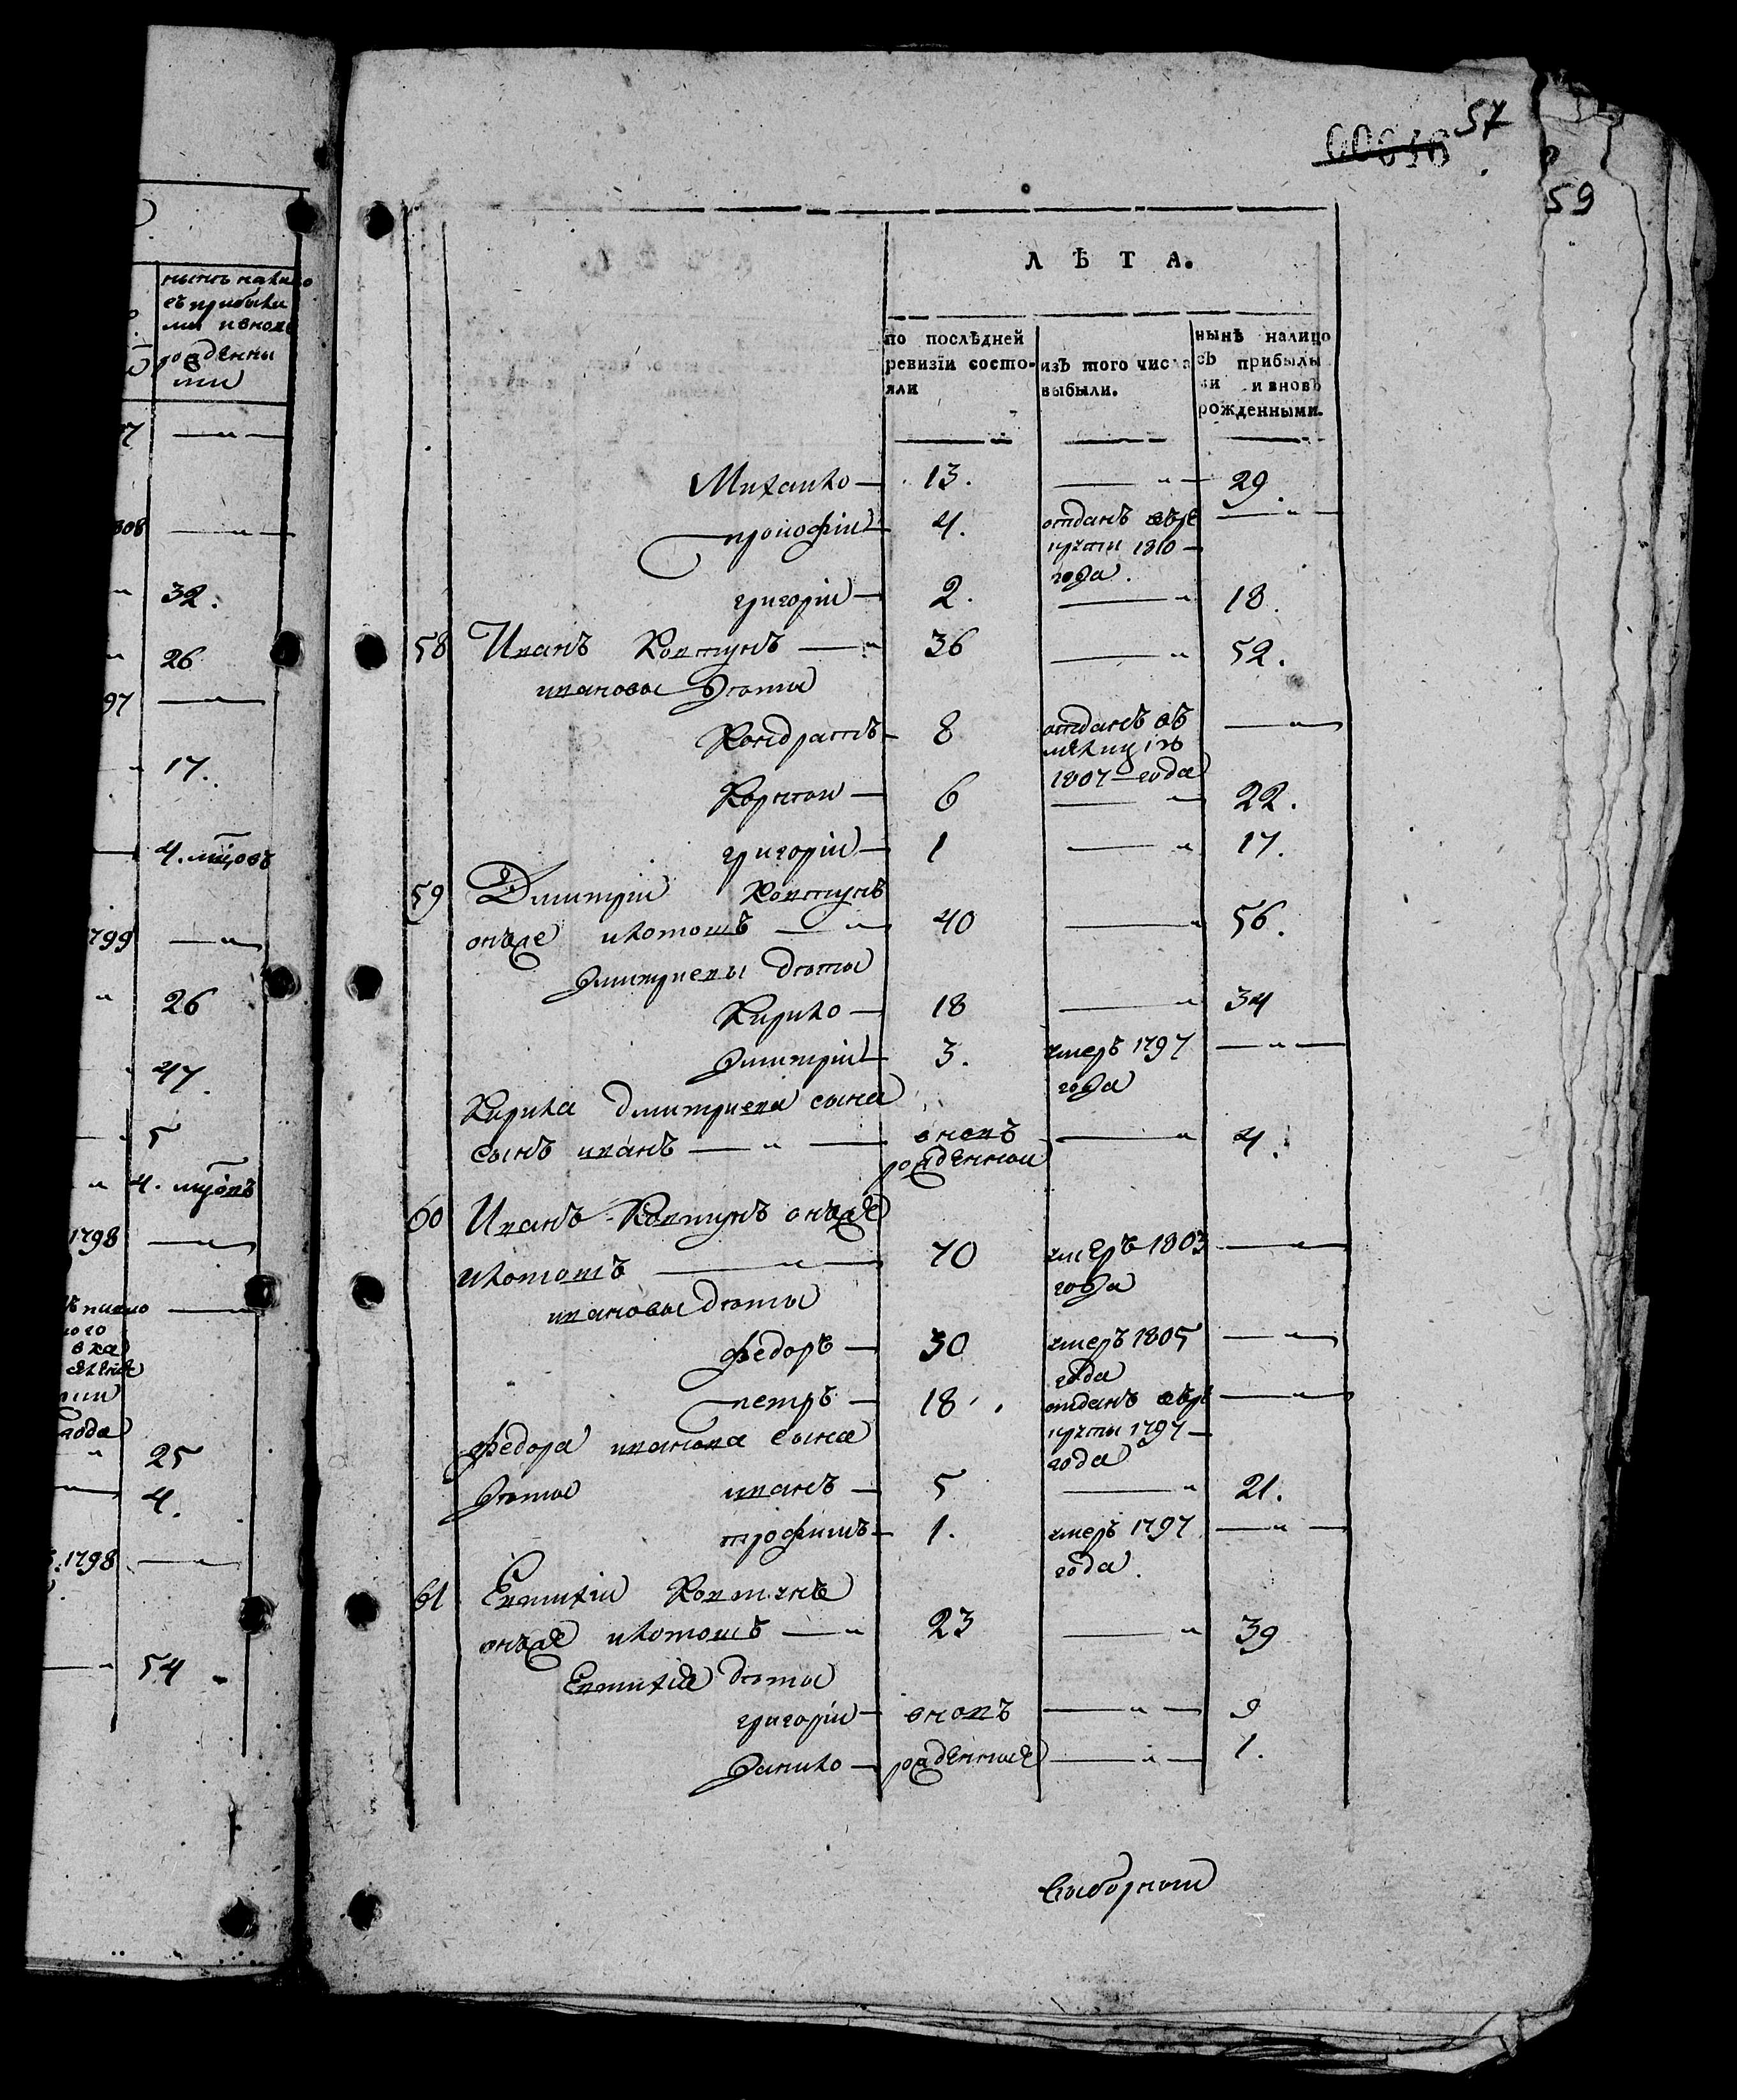 нынѣ налицо
съ прибылы
ми и вновь
рожденны
ми
97 —„—
808 —„—
„ 32.
„ 26
97 —„—
17.
4. мцовъ
1799 —„—
„ 26
47.
5
„ 4. мцовъ
1798 —„—
года
„ 25
4.
1798 —„—
—„ 54
57
59
ЛѢТА.
по послѣдней ревизїи состо-яли
изъ того числа выбыли.
нынѣ налицо съ прибылы ми и вновь рожденными.
Михайло — 13. —„— 29.
прокофій — 4. отданъ въ ре —„—
круты 1810 —
года.
григорій — 2. —„ 18.
58 Иванъ Ковтунъ —„ 36 —„ 52.
ивановы дѣти
Кондратъ — 8 отданъ въ —„—
милицїю
1807 — года
Корней — 6 —„ 22.
григорій — 1 —„ 17.
59 Дмитрій Ковтунъ
онъже —„ 40 —„ 56.
дмитриевы дѣти
Кирило — 18 —„ 34
дмитрій — 3. умеръ 1797 —„—
года
Кирила дмитриева сына
сынъ иванъ —„— вновь —„ 4.
рожденной
60 Иванъ Ковтунъ онъже
—„— 70 умеръ 1803 —„—
года
ивановы дѣти
федоръ — 30 умеръ 1805 —„—
года
петръ — 18. отданъ въ ре —„—
круты 1797 —
года
федора иванова сына
дѣти иванъ — 5 —„ 21.
трофимъ — 1. умеръ 1797 —„—
года.
61 Евтихій Ковтунъ
онъже —„ 23 —„ 39
Евтихіе дѣти
григорій — вновь —„— 9
данило — рожденные —„— 1.
Выборной